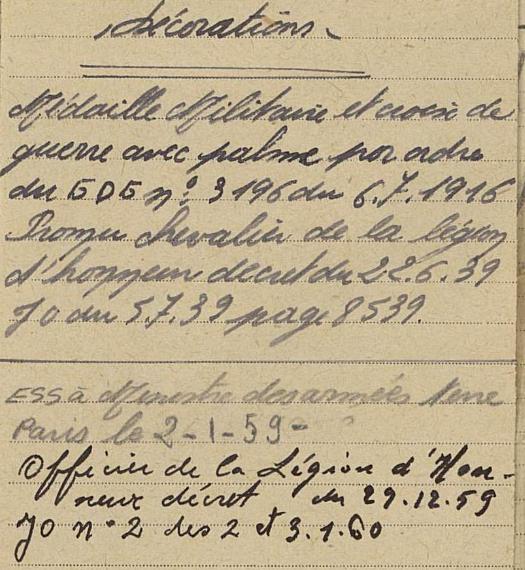 Décorations
Médaille Militaire et croix de
guerre avec palme par ordre
du GQG n° 3196 du 6.7.1916
Promu Chevalier de la légion
d'honneur décret du 22.6.39
JO du 5.7.39 page 8539.
ESS à Ministre des armées Terre
Paris le 2-1-59-
Officier de la Légion d'Hon-
neur décret du 29.12.59
JO n° 2 des 2 et 3.1.60